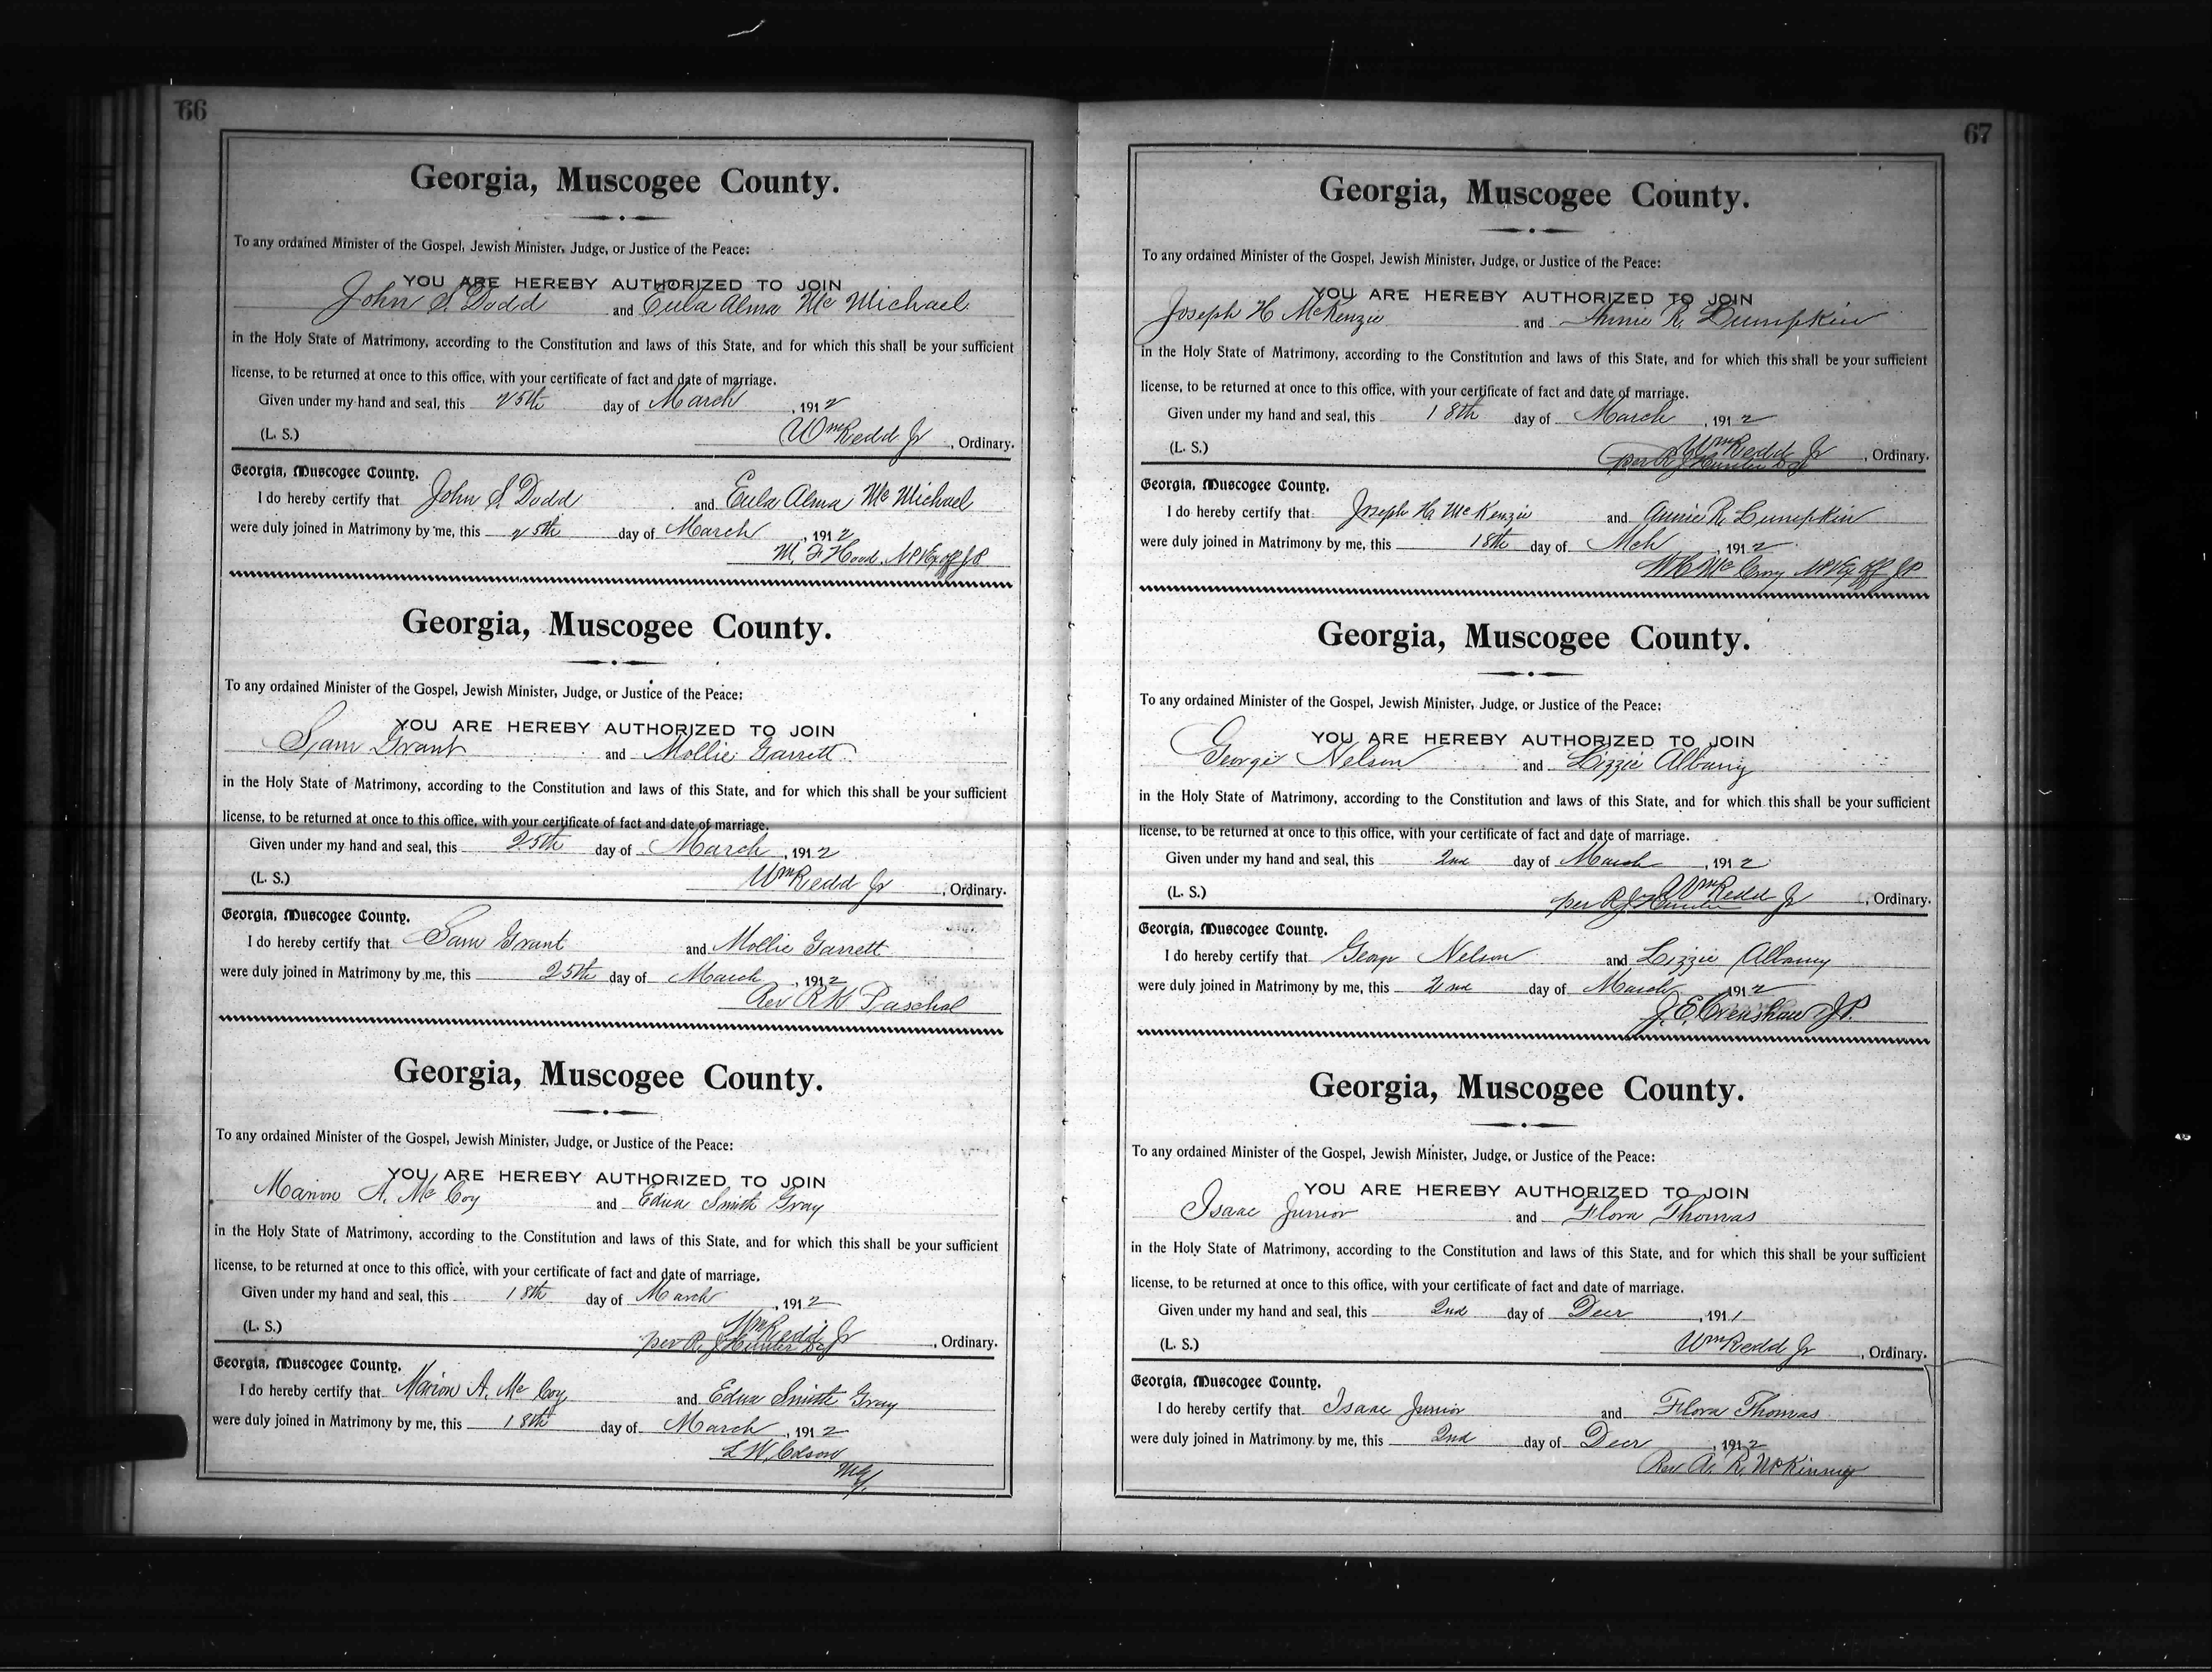 66
Georgia, Muscogee County.
To any ordained Minister of the Gospel, Jewish Minister, Judge, or Justice of the Peace:
YOU ARE HEREBY AUTHORIZED TO JOIN
John S. Dodd and Eula Alma McMichael
in the Holy State of Matrimony, according to the Constitution and laws of this State, and for which this shall be your sufficient
license, to be returned at once to this office, with your certificate of fact and date of marriage.
Given under my hand and seal, this 25th day of March, 1912
(L. S.) Wm Redd Jr, Ordinary.
Georgia, Muscogee County.
I do hereby certify that John S. Dodd and Eula Alma McMichael
were duly joined in Matrimony by me, this 25th day of March, 1912
M. F. Hood, NP & Ex off JP
Georgia, Muscogee County.
To any ordained Minister of the Gospel, Jewish Minister, Judge, or Justice of the Peace:
YOU ARE HEREBY AUTHORIZED TO JOIN
Sam Grant and Mollie Garrett
in the Holy State of Matrimony, according to the Constitution and laws of this State, and for which this shall be your sufficient
license, to be returned at once to this office, with your certificate of fact and date of marriage.
Given under my hand and seal, this 25th day of March, 1912
(L. S.) Wm Redd Jr, Ordinary.
Georgia, Muscogee County.
I do hereby certify that Sam Grant and Mollie Garrett
were duly joined in Matrimony by me, this 25th day of March, 1912
Rev R K Paschal
Georgia, Muscogee County.
To any ordained Minister of the Gospel, Jewish Minister, Judge, or Justice of the Peace:
YOU ARE HEREBY AUTHORIZED TO JOIN
Marion A. McCoy and Edna Smith Gray
in the Holy State of Matrimony, according to the Constitution and laws of this State, and for which this shall be your sufficient
license, to be returned at once to this office, with your certificate of fact and date of marriage.
Given under my hand and seal, this 18th day of March, 1912
Wm Redd Jr
(L. S.) per R. J. Hunter, Ordinary.
Georgia, Muscogee County.
I do hereby certify that Marion A. McCoy and Edna Smith Gray
were duly joined in Matrimony by me, this 18th day of March, 1912
L W Colson
MG
67
Georgia, Muscogee County.
To any ordained Minister of the Gospel, Jewish Minister, Judge, or Justice of the Peace:
YOU ARE HEREBY AUTHORIZED TO JOIN
Joseph H McKenzie and Annie R. Lumpkin
in the Holy State of Matrimony, according to the Constitution and laws of this State, and for which this shall be your sufficient
license, to be returned at once to this office, with your certificate of fact and date of marriage.
Given under my hand and seal, this 18th day of March, 1912
Wm Redd Jr
(L. S.) per R J Hunter, Ordinary.
Georgia, Muscogee County.
I do hereby certify that Joseph H. McKenzie and Annie R. Lumpkin
were duly joined in Matrimony by me, this 18th day of Mch, 1912
McCrory NP & Ex off JP
Georgia, Muscogee County.
To any ordained Minister of the Gospel, Jewish Minister, Judge, or Justice of the Peace:
YOU ARE HEREBY AUTHORIZED TO JOIN
George Nelson and Lizzie Albany
in the Holy State of Matrimony, according to the Constitution and laws of this State, and for which this shall be your sufficient
license, to be returned at once to this office, with your certificate of fact and date of marriage.
Given under my hand and seal, this 2nd day of March, 1912
Wm Redd Jr
(L. S.) per R J Hunter, Ordinary.
Georgia, Muscogee County.
I do hereby certify that George Nelson and Lizzie Albany
were duly joined in Matrimony by me, this 2nd day of March, 1912
J. E. Crenshaw J.P.
Georgia, Muscogee County.
To any ordained Minister of the Gospel, Jewish Minister, Judge, or Justice of the Peace:
YOU ARE HEREBY AUTHORIZED TO JOIN
Isaac Junior and Flora Thomas
in the Holy State of Matrimony, according to the Constitution and laws of this State, and for which this shall be your sufficient
license, to be returned at once to this office, with your certificate of fact and date of marriage.
Given under my hand and seal, this 2nd day of Decr, 1911
(L. S.) Wm Redd Jr, Ordinary.
Georgia, Muscogee County.
I do hereby certify that Isaac Junior and Flora Thomas
were duly joined in Matrimony by me, this 2nd day of Decr, 1912
Rev A. R. McKinney